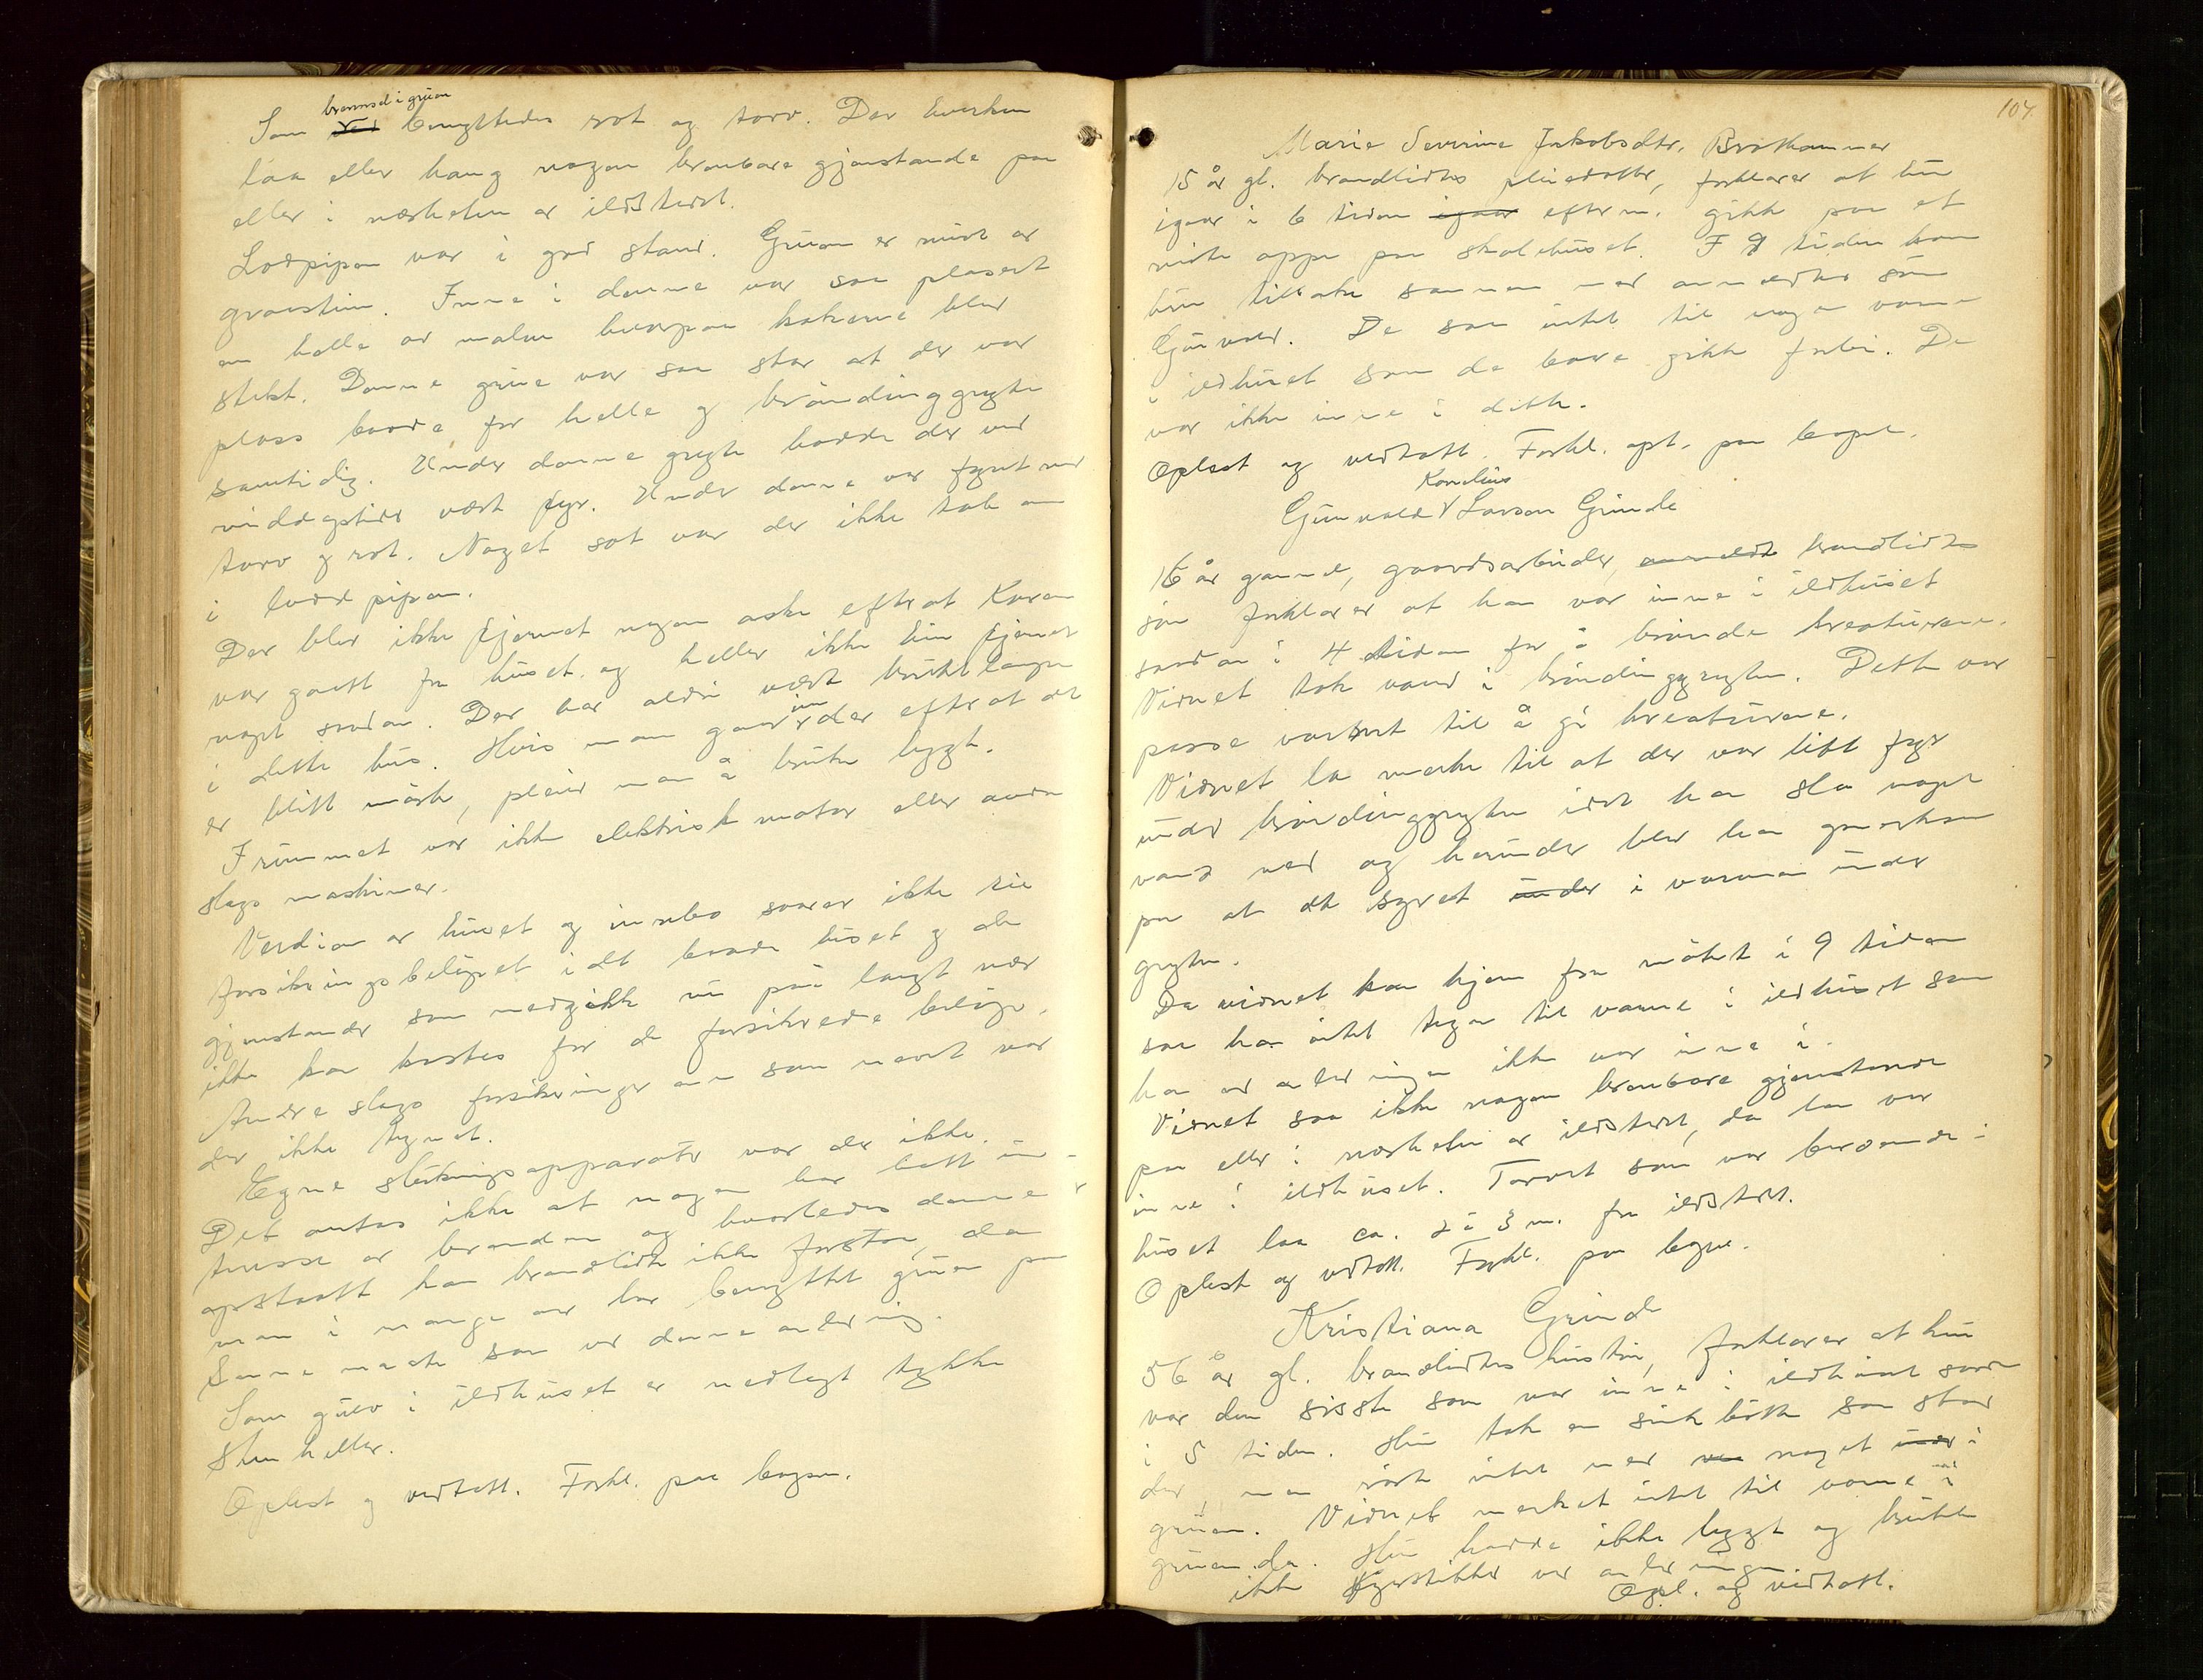 brensel i gruen
Som ved benyttedes rot og torv. Der hverken
laa eller hang nogen brenbare gjenstande paa
eller i nærheten av ildstedet.
Lodpipen var i god stand. Gruen er muret av
graasten. Inne i denne var saa plasert
en helle av malm hvorpaa kakerne blev
stekt. Denne grue var saa stor at der var
plass baade for helle og bröndinggryte
samtidig. Under denne gryte hadde der ved
middagstider vært fyr. Under denne var fyret med
torv og rot. Noget sot var der ikke tale om
i lodd pipen.
Der blev ikke fjernet nogen aske efterat Karen
var gaatt fra huset og heller ikke hun fjernet
noget sredan. Der har aldri vært brukt lampe
i dette hus. Hvis man gaar inn der efterat det
er blitt mörkt, pleier man å bruke lygt.
I rummet var ikke elektrisk motor eller andre
slags maskiner.
Verdien av huset og innbo svarer ikke til
forsikringsbelöpet idet baade huset og de
gjenstander som medgikk nu på langt nær
ikke kan kostes for de forsikrede belöp.
Andre slags forsikringer enn som nevnt var
der ikke tegnet.
Egne slukningsapparater var der ikke.
Det antas ikke at nogen har hatt in-
teresse av branden og hvorledes denne er
opstaatt kan brandlidte ikke forstaa, da
man i mange aar har benyttet gruen paa
samme maate som ved denne anledning.
Som gulv i ildhuset er nedlagt tykke
stenheller.
Oplest og vedtatt. Forkl. paa bogen.
107.
Marie Severine Jakobsdtr. Brötkammer
15 år gl. brandlidtes pleiedatter, forklarer at hun
igaar i 6 tiden igaar efterm. gikk paa et
möte oppe paa skolehuset. I 9 tiden kom
hun tilbake sammen med anmeldtes sön
Gunvald. De saa intet til nogen varme
i ildhuset som de bare gikk forbi. De
var ikke inne i dette.
Oplest og vedtatt. Forkl. opt. paa begge.
Kornelius
Gunvald Larsen Grinde
16 år gammel, gaardsarbeider, anmeldte brandlidtes
sön forklarer at han var inne i ildhuset
sredan i 4 tiden for å brönde kreaturene.
Vidnet tok vand i bröndinggryten. Dette var
passe varmt til å gi kreaturene.
Vidnet la merke til at der var litt fyr
under bröndinggryten idet han sla noget
vand ned og herunder blev han opmerksom
paa at det syret under i varmen under
gryten.
Da vidnet kom hjem fra mötet i 9 tiden
saa han intet tegn til varme i ildhuset som
han ved anledningen ikke var inne i.
Vidnet saa ikke nogen brenbare gjenstande
paa eller i nærheten av ildstedet, da han var
inne i ildhuset. Torvet som var beroende i
huset laa ca. 2 à 3 m. fra ildstedet.
Oplest og vedtatt. Forkl. paa begge.
Kristiana Grinde
56 år gl. brandlidtes hustru, forklarer at hun
var den sisste som var inne i ildhuset sredan
i 5 tiden. Hun tok en sink bötte som stod
der, men rörte intet med ved noget under i
gruen. Vidnet merket intet til varme i
gruen da. Hun hadde ikke lygt og brukte
ikke fyrstikker ved anledningen.
Opl. og vedtatt.